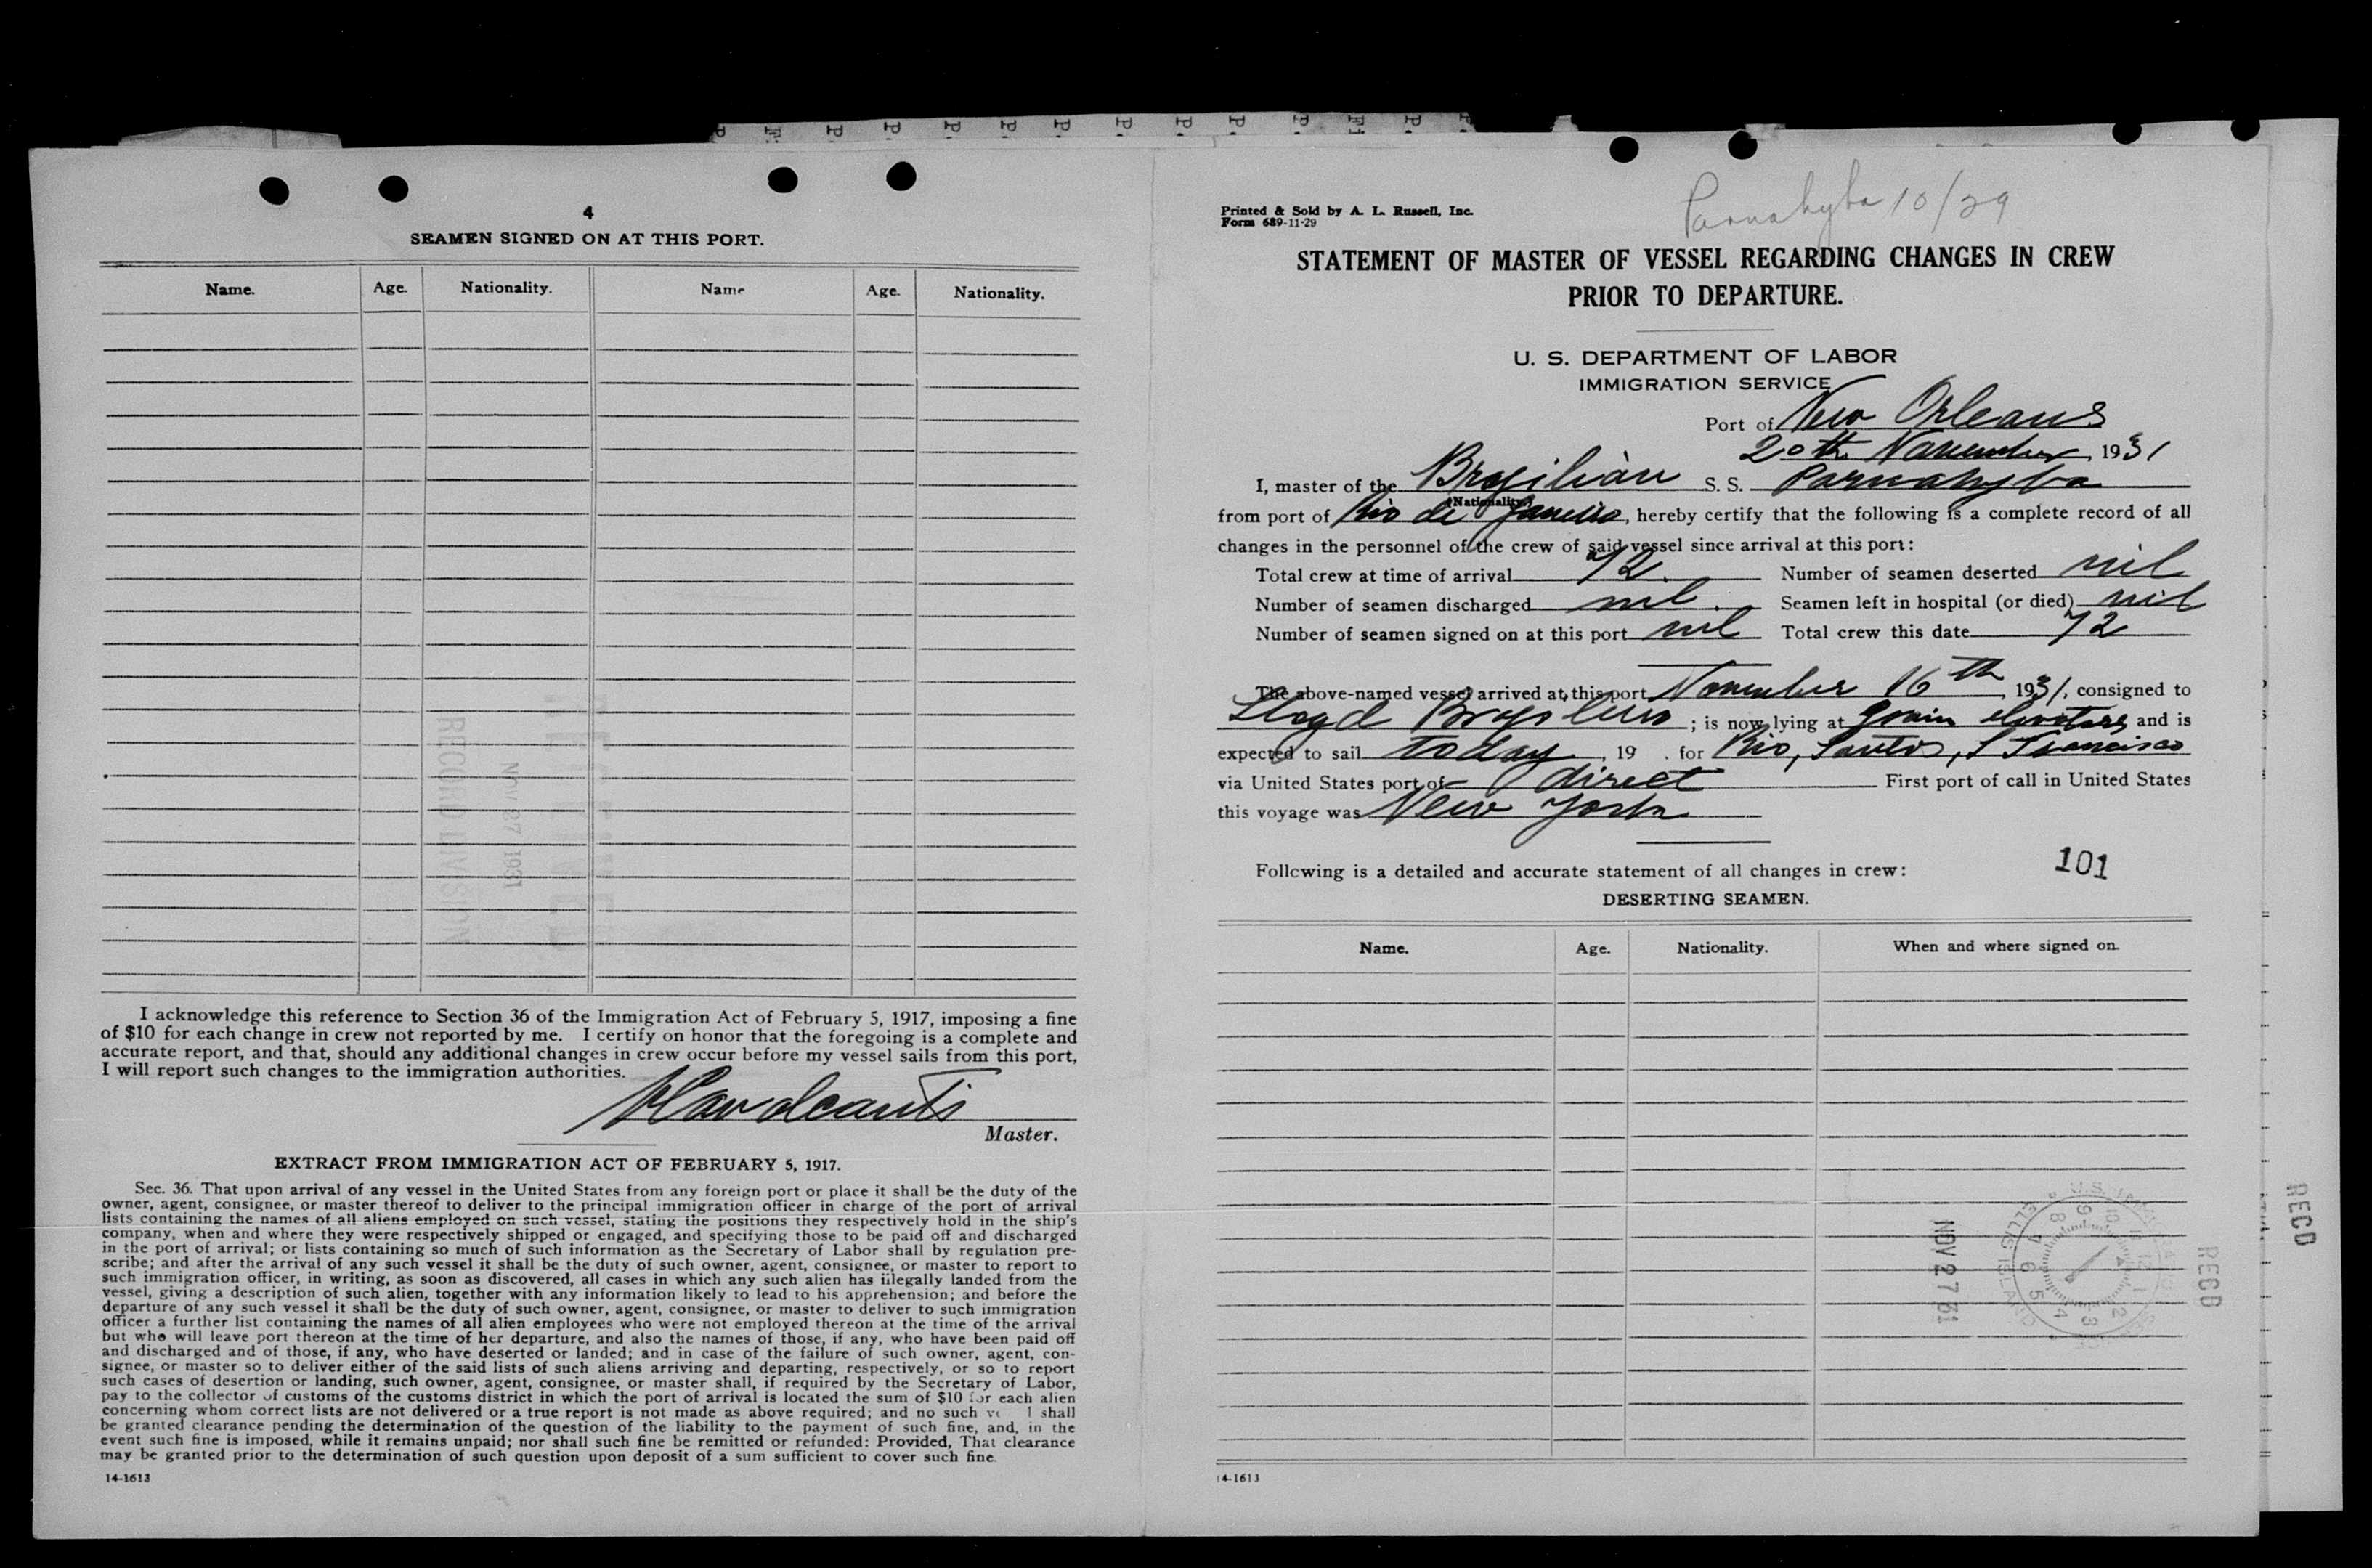 4
SEAMEN SIGNED ON AT THIS PORT.
Name. Age. Nationality. Name Age. Nationality.
RECORD DIVISION
NOV 27 1931
I acknowledge this reference to Section 36 of the Immigration Act of February 5, 1917, imposing a fine
of $10 for each change in crew not reported by me. I certify on honor that the foregoing is a complete and
accurate report, and that, should any additional changes in crew occur before my vessel sails from this port,
I will report such changes to the immigration authorities.
Cavalcanti
Master.
EXTRACT FROM IMMIGRATION ACT OF FEBRUARY 5, 1917.
Sec. 36. That upon arrival of any vessel in the United States from any foreign port or place it shall be the duty of the
owner, agent, consignee, or master thereof to deliver to the principal immigration officer in charge of the port of arrival
lists containing the names of all aliens employed on such vessel, stating the positions they respectively hold in the ship's
company, when and where they were respectively shipped or engaged, and specifying those to be paid off and discharged
in the port of arrival; or lists containing so much of such information as the Secretary of Labor shall by regulation pre-
scribe; and after the arrival of any such vessel it shall be the duty of such owner, agent, consignee, or master to report to
such immigration officer, in writing, as soon as discovered, all cases in which any such alien has illegally landed from the
vessel, giving a description of such alien, together with any information likely to lead to his apprehension; and before the
departure of any such vessel it shall be the duty of such owner, agent, consignee, or master to deliver to such immigration
officer a further list containing the names of all alien employees who were not employed thereon at the time of the arrival
but who will leave port thereon at the time of her departure, and also the names of those, if any, who have been paid off
and discharged and of those, if any, who have deserted or landed; and in case of the failure of such owner, agent, con-
signee, or master so to deliver either of the said lists of such aliens arriving and departing, respectively, or so to report
such cases of desertion or landing, such owner, agent, consignee, or master shall, if required by the Secretary of Labor,
pay to the collector of customs of the customs district in which the port of arrival is located the sum of $10 for each alien
concerning whom correct lists are not delivered or a true report is not made as above required; and no such shall
be granted clearance pending the determination of the question of the liability to the payment of such fine, and, in the
event such fine is imposed, while it remains unpaid; nor shall such fine be remitted or refunded: Provided, That clearance
may be granted prior to the determination of such question upon deposit of a sum sufficient to cover such fine.
14-1613
Parnahyba 10/29
Printed & Sold by A. L. Russell, Inc.
Form 689-11-29
STATEMENT OF MASTER OF VESSEL REGARDING CHANGES IN CREW
PRIOR TO DEPARTURE.
U. S. DEPARTMENT OF LABOR
IMMIGRATION SERVICE
Port of New Orleans
20th November, 1931
I, master of the Brazilian S. S. Parnahyba
(Nationality)
from port of Rio de Janeiro, hereby certify that the following is a complete record of all
changes in the personnel of the crew of said vessel since arrival at this port:
Total crew at time of arrival 72. Number of seamen deserted nil
Number of seamen discharged nil. Seamen left in hospital (or died) nil
Number of seamen signed on at this port nil Total crew this date 72
The above-named vessel arrived at this port November 16th, 1931, consigned to
Lloyd Brasileiro; is now lying at grain elevators and is
expected to sail today, 19 . for Rio, Santos, S Francisco
via United States port of direct First port of call in United States
this voyage was New York
Following is a detailed and accurate statement of all changes in crew:
101
DESERTING SEAMEN.
Name. Age. Nationality. When and where signed on.
NOV 27 31
ELLIS ISLAND
RECD
RECD
14-1613